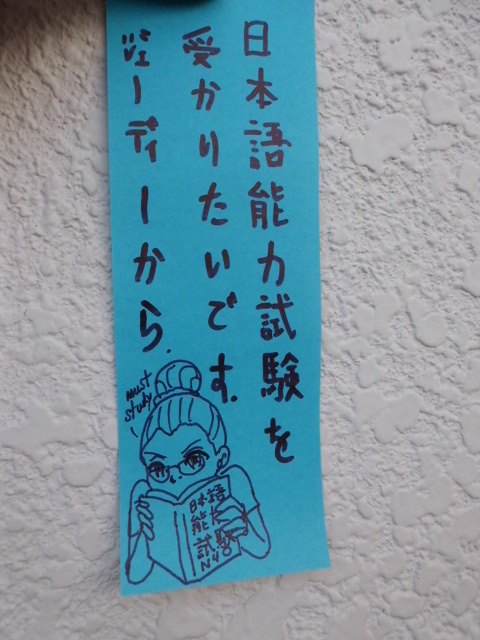 日本語能力試験を
受かりたいです.
ジェーディーから.
must
study
日本語
能力
試験
N4